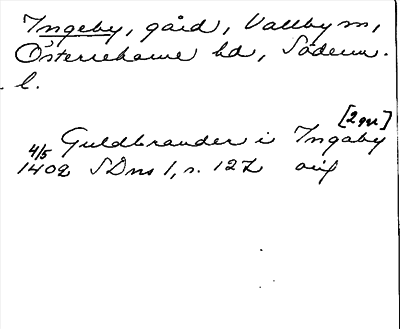 Ingeby, gård, Vallby sn,
Österrekarne hd, Söderm.
l.
[2 gr]
Guldbrander i Ingaby
4/5 1402 SDns 1, s. 127 orig